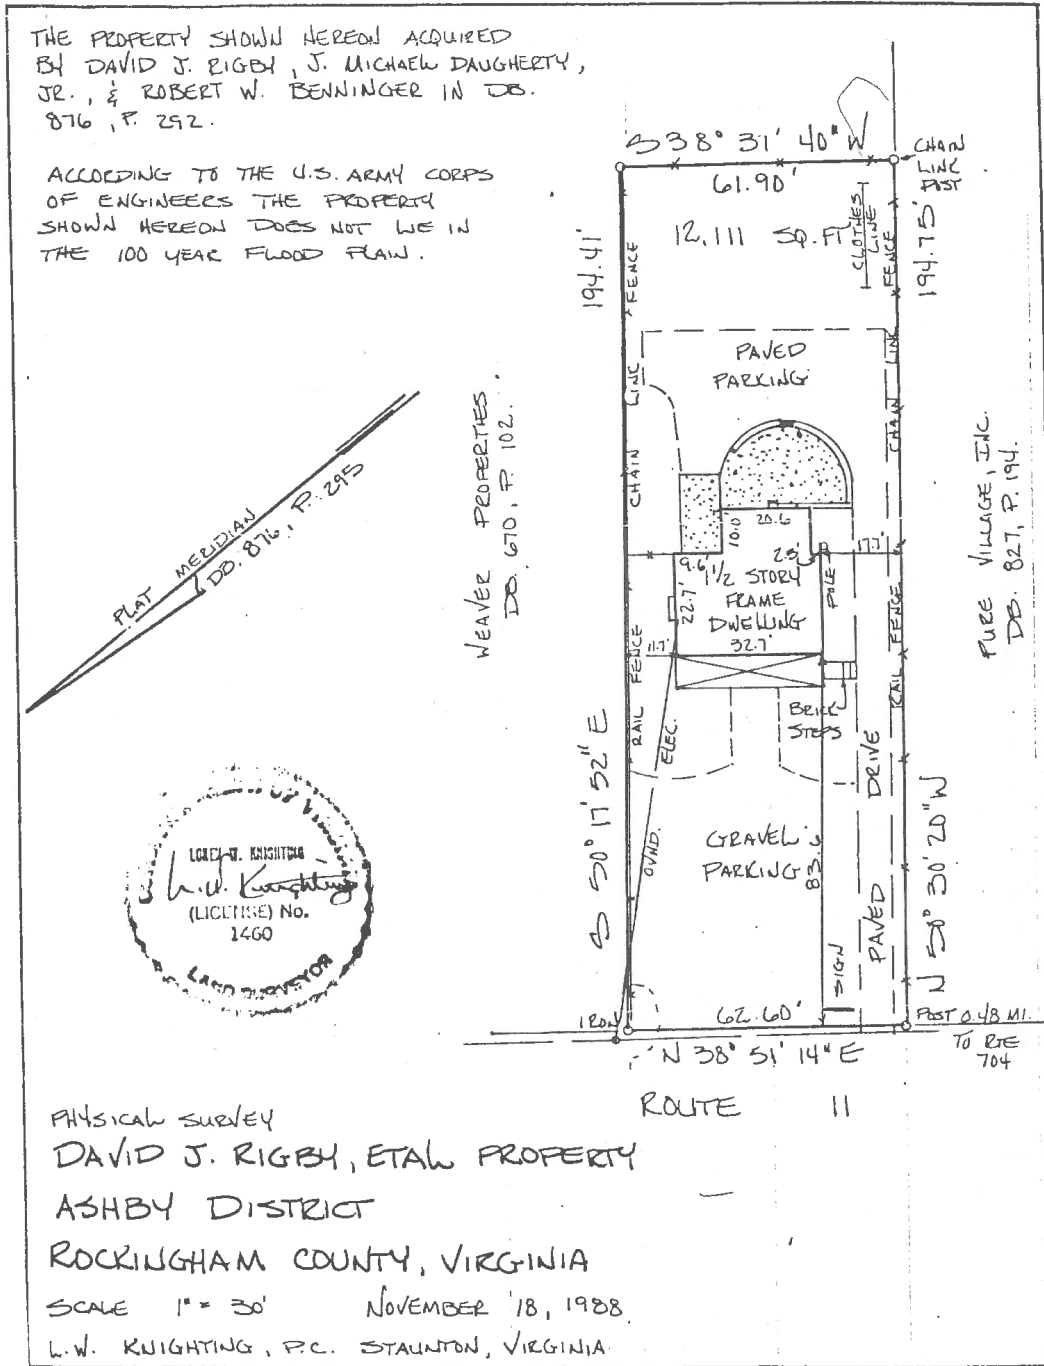 THE PROPERTY SHOWN HEREON ACQUIRED
BY DAVID J. RIGBY, J. MICHAEL DAUGHERTY,
JR., & ROBERT W. BENNINGER IN DB.
876, P. 292.
ACCORDING TO THE U.S. ARMY CORPS
OF ENGINEERS THE PROPERTY
SHOWN HEREON DOES NOT LIE IN
THE 100 YEAR FLOOD PLAIN.
S 38° 31' 40" W
61.90'
CHAIN
LINK
POST
12,111 SQ. FT
CLOTHES
LINE
194.41'
194.75'
CHAIN LINK FENCE
CHAIN LINK FENCE
PAVED
PARKING
PLAT MERIDIAN
DB. 876, P. 295
WEAVER PROPERTIES
DB. 670, P. 102.
PURE VILLAGE, INC.
DB. 827, P. 194.
10.0'
20.6
2.3'
17.7'
9.6'
1 1/2 STORY
FRAME
DWELLING
22.7'
32.7'
11.7'
POLE
RAIL FENCE
RAIL FENCE
BRICK
STEPS
OVHD. ELEC.
GRAVEL
PARKING
83.6
PAVED DRIVE
SIGN
S 50° 17' 52" E
N 50° 30' 20" W
LOREN W. KNIGHTING
L.W. Knighting
(LICENSE) No.
1460
LAND SURVEYOR
IRON
62.60'
POST 0.48 MI.
TO RTE
704
N 38° 51' 14" E
ROUTE 11
PHYSICAL SURVEY
DAVID J. RIGBY, ETAL PROPERTY
ASHBY DISTRICT
ROCKINGHAM COUNTY, VIRGINIA
SCALE 1" = 30' NOVEMBER 18, 1988
L.W. KNIGHTING, P.C. STAUNTON, VIRGINIA